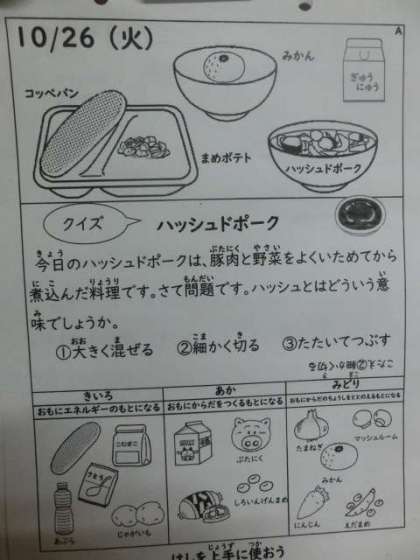 10/26（火）
A
みかん
ぎゅうにゅう
コッペパン
まめポテト
ハッシュドポーク
クイズ
ハッシュドポーク
今日のハッシュドポークは、豚肉と野菜をよくいためてから
煮込んだ料理です。さて問題です。ハッシュとはどういう意
味でしょうか。
①大きく混ぜる ②細かく切る ③たたいてつぶす
こたえ②細かく切る
きいろ あか みどり
おもにエネルギーのもとになる おもにからだをつくるもとになる おもにからだのちょうしをととのえるもとになる
こむぎこ
さとう
あぶら
じゃがいも
ぶたにく
しろいんげんまめ
たまねぎ
マッシュルーム
みかん
にんじん
えだまめ
はしを上手に使おう